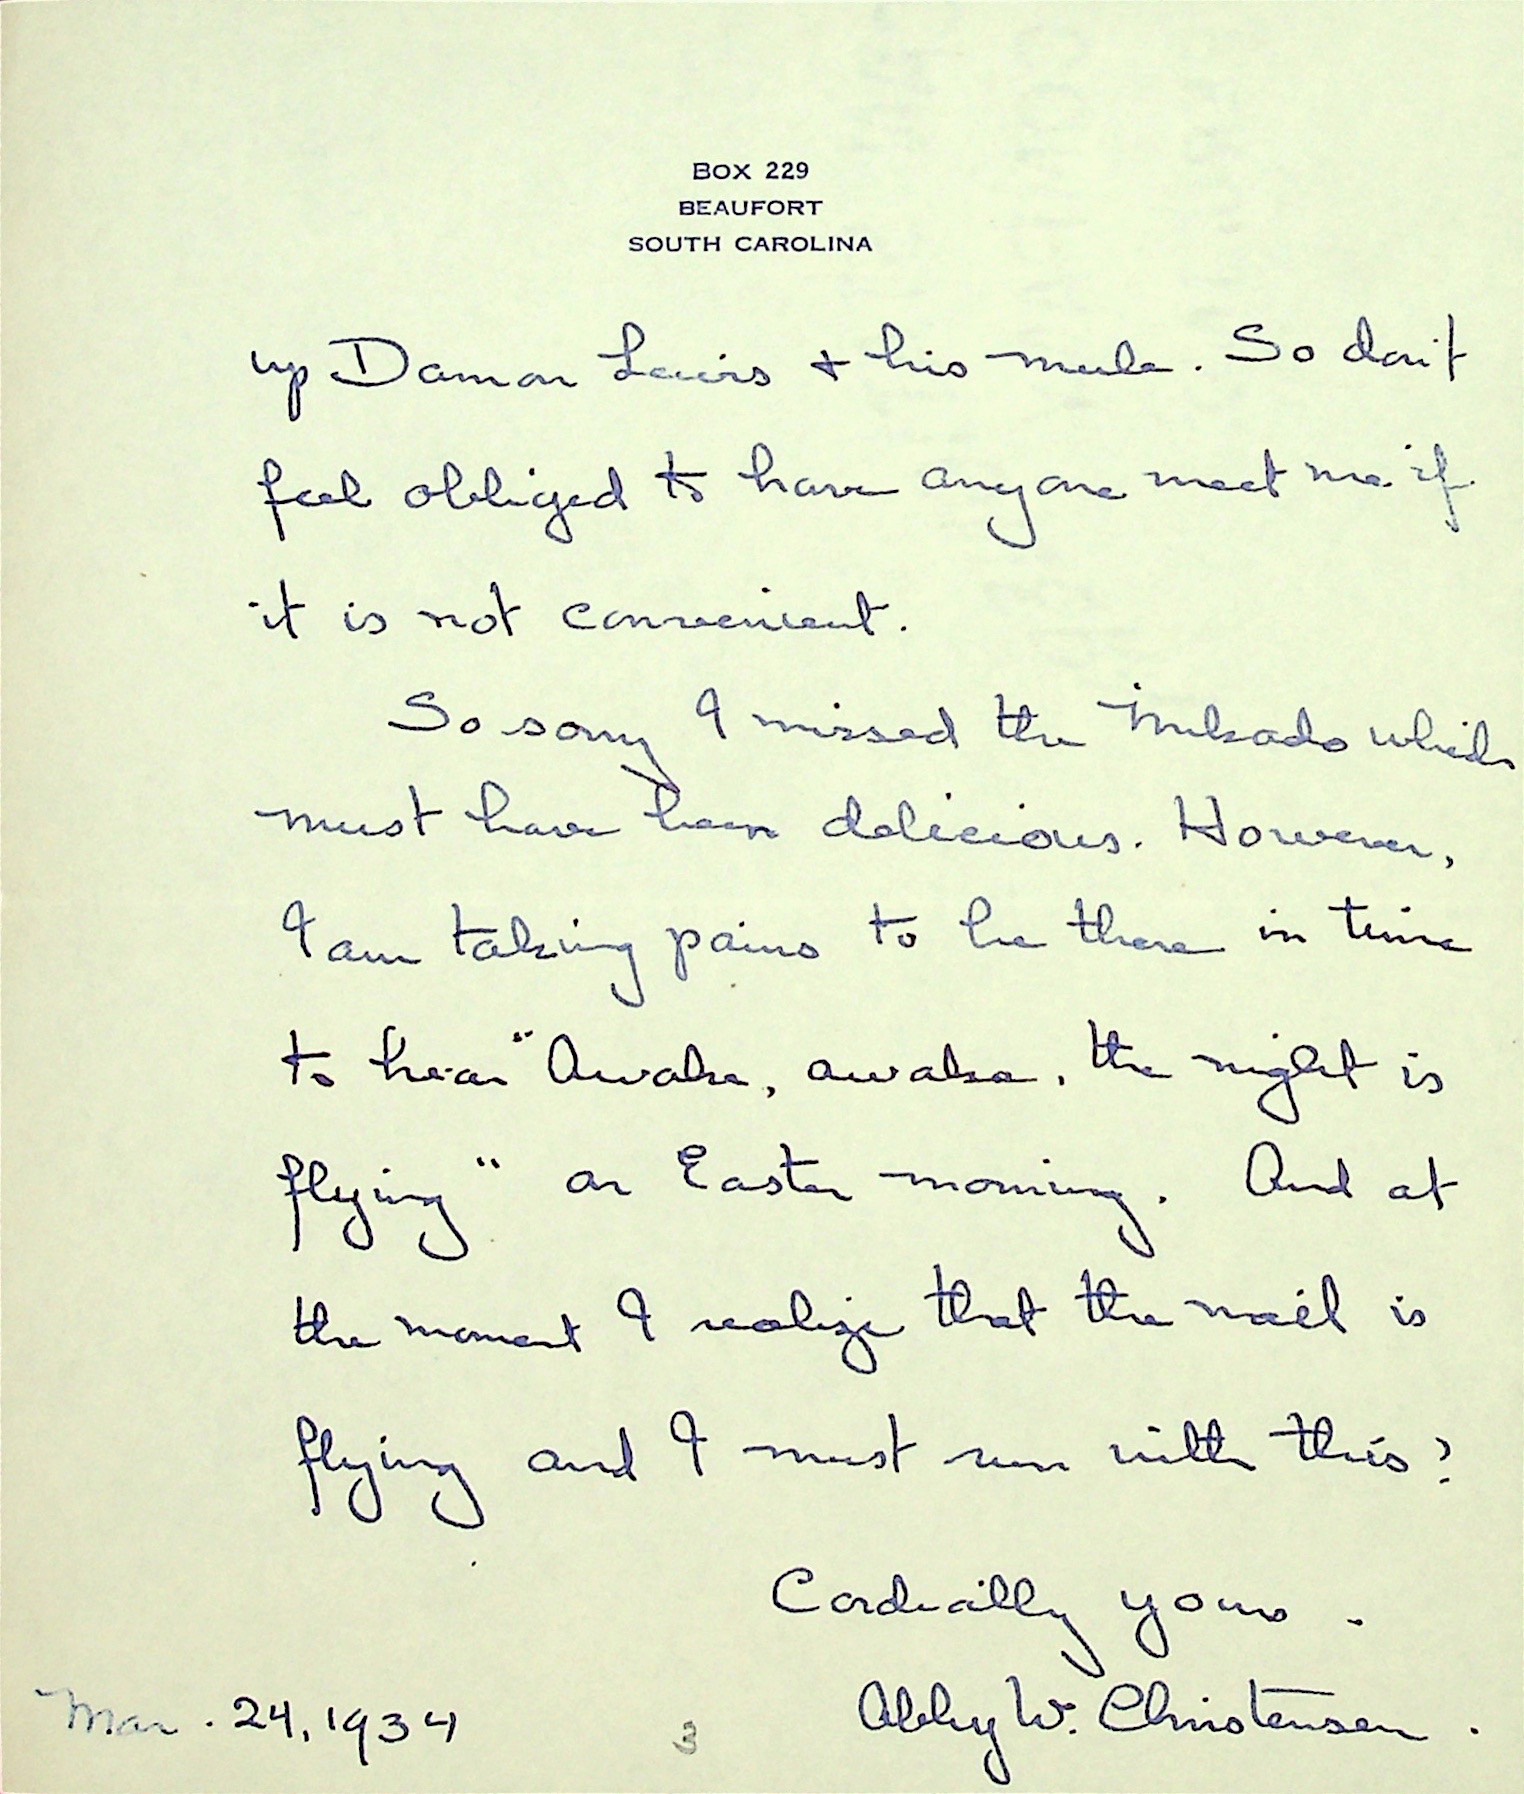 BOX 229
BEAUFORT
SOUTH CAROLINA
up Damon Lewis + his mule. So don't
feel obliged to have anyone meet me if
it is not convenient.
So sorry I missed the Mikado which
must have been delicious. However,
I am taking pains to be there in time
to hear "Awake, awake, the night is
flying" on Easter morning. And at
the moment I realize that the mail is
flying and I must run with this!
Cordially yours.
Abby W. Christensen.
Mar. 24, 1934
3